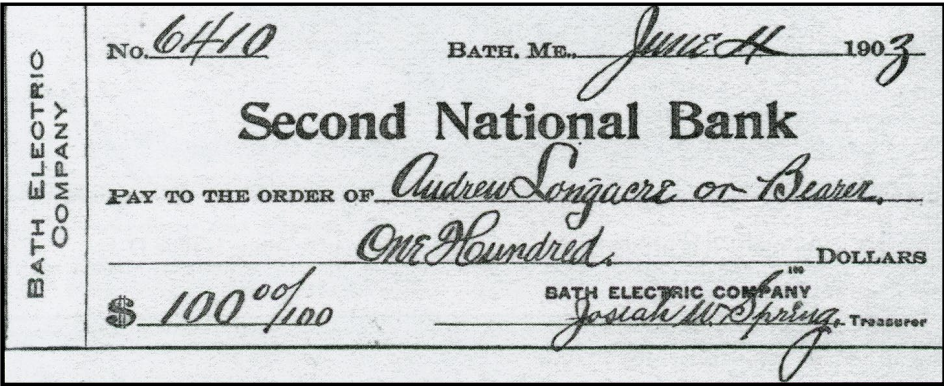 BATH ELECTRIC
COMPANY
No. 6410 BATH, ME., June 4 1903
Second National Bank
PAY TO THE ORDER OF Andrew Longacre or Bearer.
One Hundred. DOLLARS
$ 100 00/100
100
BATH ELECTRIC COMPANY
Josiah W. Spring, Treasurer